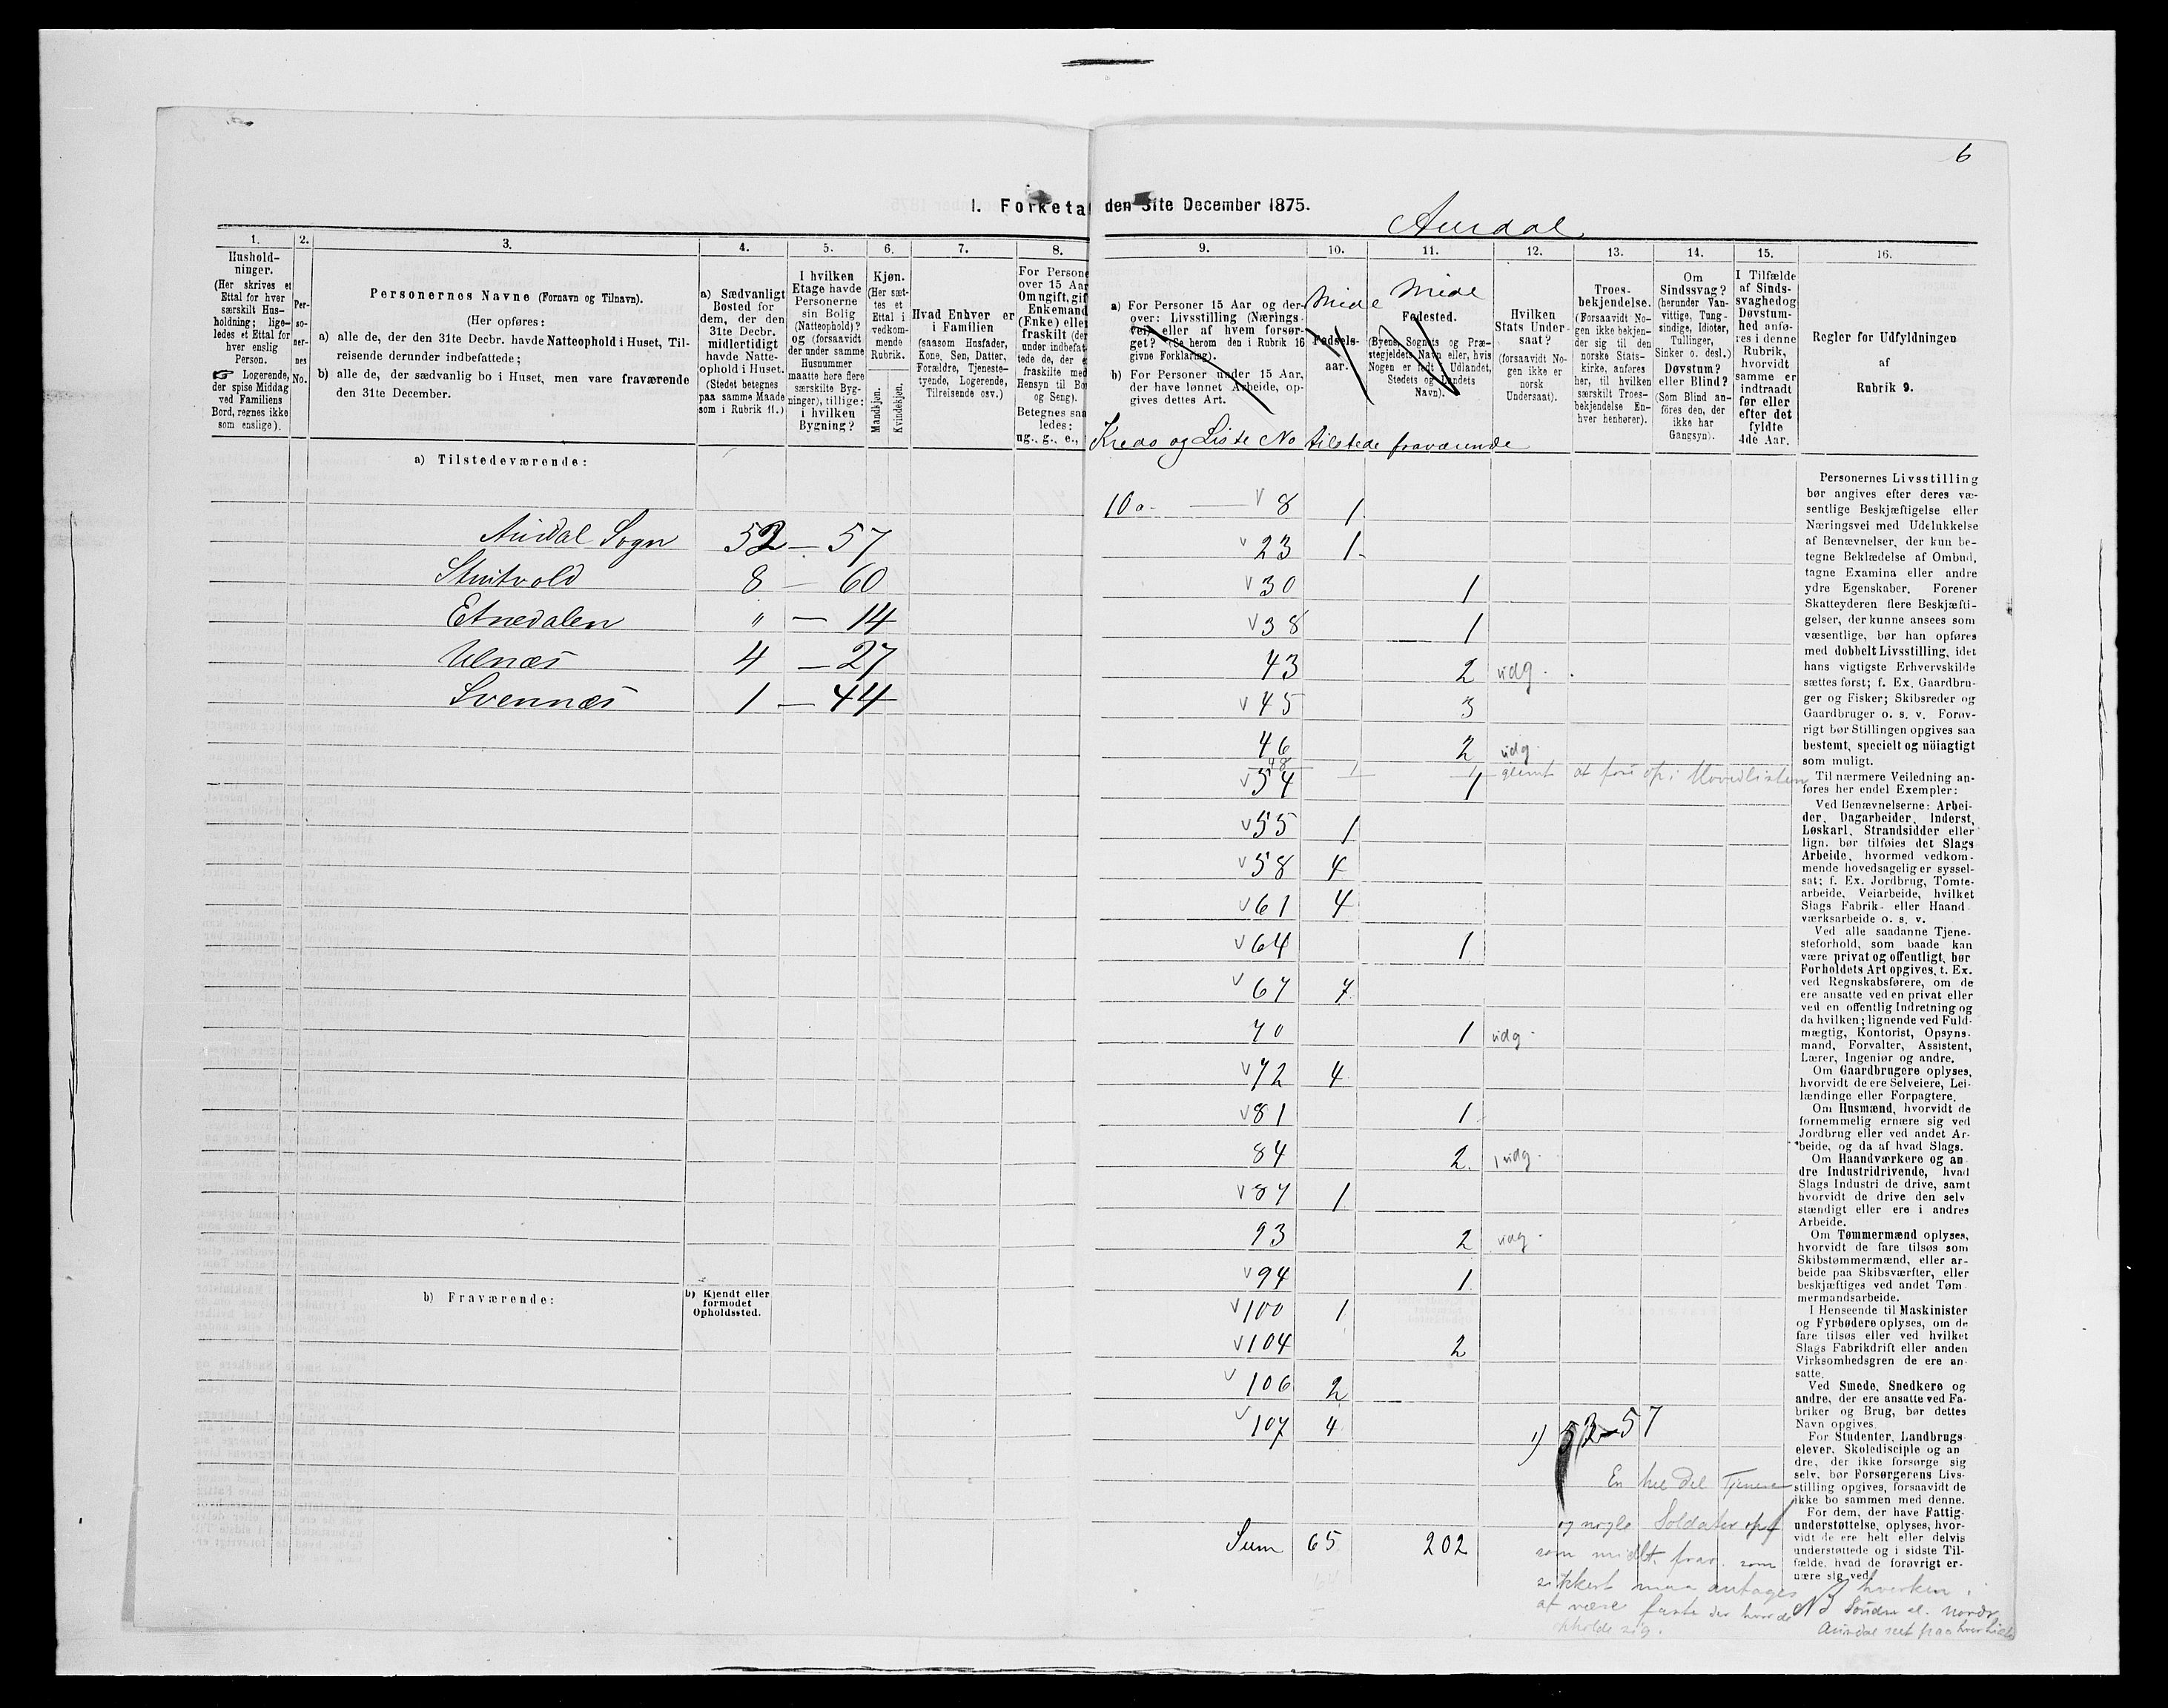 6
1. Forketa den 31te December 1875.
Aurdal
1.
Hushold-
ninger.
(Her skrives et
Ettal for hver
særskilt Hus-
holdning; lige-
ledes et Ettal for
hver enslig
Person.
☞ Logerende,
der spise Middag
ved Familiens
Bord, regnes ikke
som enslige).
2.
Per-
so-
ner-
nes
No.
3.
Personernes Navne (Fornavn og Tilnavn).
(Her opføres:
a) alle de, der den 31te Decbr. havde Natteophold i Huset, Til-
reisende derunder indbefattede;
b) alle de, der sædvanlig bo i Huset, men vare fraværende
den 31te December.
4.
a) Sædvanligt
Bosted for
dem, der den
31te Decbr.
midlertidigt
havde Natte-
ophold i Huset.
(Stedet betegnes
paa samme Maade
som i Rubrik 11.)
5.
I hvilken
Etage havde
Personerne
sin Bolig
(Natteophold)?
og (forsaavidt
der under samme
Husnummer
maatte høre flere
særskilte Byg-
ninger), tillige:
i hvilken
Bygning?
6.
Kjøn.
(Her sæt-
tes et
Ettal i
vedkom-
mende
Rubrik.
Mandkjøn.
Kvindekjøn.
7.
Hvad Enhver er
i Familien
(saasom Husfader,
Kone, Søn, Datter,
Forældre, Tjeneste-
tyende, Logerende,
Tilreisende osv.)
8.
For Persone
over 15 Aar
Om ugift, gif
Enkemand
(Enke) eller
fraskilt (der
under indbefat-
tede de, der e
fraskilte med
Hensyn til Bo
og Seng).
Betegnes saa
ledes:
ug., g., e.,
9.
a) For Personer 15 Aar og der-
over: Livsstilling (Nærings-
vei) eller af hvem forsør-
get? (Se herom den i Rubrik 16
givne Forklaring).
b) For Personer under 15 Aar,
der have lønnet Arbeide, op-
gives dettes Art.
10.
Mide
Fødsels-
aar.
11.
Mide
Fødested.
(Byens, Sognets og Præ-
stegjeldets Navn eller, hvis
Nogen er født i Udlandet,
Stedets og Landets
Navn).
12.
Hvilken
Stats Under-
saat?
(forsaavidt No-
gen ikke er
norsk
Undersaat).
13.
Troes-
bekjendelse.
(Forsaavidt No-
gen ikke bekjen-
der sig til den
norske Stats-
kirke, anføres
her, til hvilken
særskilt Troes-
bekjendelse En-
hver henhører).
14.
Om
Sindssvag?
(herunder Van-
vittige, Tung-
sindige, Idioter,
Tullinger,
Sinker o. desl.)
Døvstum?
eller Blind?
(Som Blind an-
føres den, der
ikke har
Gangsyn).
15.
I Tilfælde
af Sinds-
svaghed og
Døvstum-
hed anfø-
res i denne
Rubrik,
hvorvidt
samme er
indtraadt
før eller
efter det
fyldte
4de Aar.
16.
Regler for Udfyldningen
af
Rubrik 9.
Kreds og Liste No tilstede fraværende
a) Tilstedeværende:
Aurdal Sogn 52 — 57
Strutvold 8 — 60
Etnedalen " — 14
Ulnæs 4 — 27
Svennæs 1 — 44
10a. — v 8 1
v 23 1
v 30 1
v 38 1
43 2 udg.
v 45 3
46 2 udg.
48 1 1 glemt at føre op i Hovedlisten
v 54 1
v 55 1
v 58 4
v 61 4
v 64 1
v 67 7
70 1 udg.
v 72 4
v 81 1
84 2 1 udg.
v 87 1
93 2 udg.
v 94 1
v 100 1
v 104 2
v 106 2
v 107 4
Sum 65 202
b) Fraværende:
b) Kjendt eller
formodet
Opholdssted.
1) 52 – 57
En hel del Tjenere
og nogle Soldater opf
som midlt. frav. som
sikkert maa antages
at være faste der hvor de
opholde sig.
Personernes Livsstilling
bør angives efter deres væ-
sentlige Beskjæftigelse eller
Næringsvei med Udelukkelse
af Benævnelser, der kun be-
tegne Beklædelse af Ombud,
tagne Examina eller andre
ydre Egenskaber. Forener
Skatteyderen flere Beskjæfti-
gelser, der kunne ansees som
væsentlige, bør han opføres
med dobbelt Livsstilling, idet
hans vigtigste Erhvervskilde
sættes først; f. Ex. Gaardbru-
ger og Fisker; Skibsreder og
Gaardbruger o. s. v. Forøv-
rigt bør Stillingen opgives saa
bestemt, specielt og nöiagtigt
som muligt.
Til nærmere Veiledning an-
føres her endel Exempler:
Ved Benævnelserne: Arbei-
der, Dagarbeider, Inderst,
Løskarl, Strandsidder eller
lign. bør tilføies det Slags
Arbeide, hvormed vedkom-
mende hovedsagelig er syssel-
sat; f. Ex. Jordbrug, Tomte-
arbeide, Veiarbeide, hvilket
Slags Fabrik- eller Haand-
værksarbeide o. s. v.
Ved alle saadanne Tjene-
steforhold, som baade kan
være privat og offentligt, bør
Forholdets Art opgives, t. Ex.
ved Regnskabsførere, om de
ere ansatte ved en privat eller
ved en offentlig Indretning og
da hvilken; lignende ved Fuld-
mægtig, Kontorist, Opsyns-
mand, Forvalter, Assistent,
Lærer, Ingeniør og andre.
Om Gaardbrugere oplyses,
hvorvidt de ere Selveiere, Lei-
lændinge eller Forpagtere.
Om Husmænd, hvorvidt de
fornemmelig ernære sig ved
Jordbrug eller ved andet Ar-
beide, og da af hvad Slags.
Om Haandværkere og an-
dre Industridrivende, hvad
Slags Industri de drive, samt
hvorvidt de drive den selv
stændigt eller ere i andres
Arbeide.
Om Tømmermænd oplyses,
hvorvidt de fare tilsøs som
Skibstømmermænd, eller ar-
beide paa Skibsværfter, eller
beskjæftiges ved andet Tøm-
mermandsarbeide.
I Henseende til Maskinister
og Fyrbødere oplyses, om de
fare tilsøs eller ved hvilket
Slags Fabrikdrift eller anden
Virksomhedsgren de ere an-
satte.
Ved Smede, Snedkere og
andre, der ere ansatte ved Fa-
briker og Brug, bør dettes
Navn opgives.
For Studenter, Landbrugs-
elever, Skoledisciple og an
dre, der ikke forsørge sig
selv, bør Forsørgerens Livs-
stilling opgives, forsaavidt de
ikke bo sammen med denne.
For dem, der have Fattig-
understøttelse, oplyses, hvor-
vidt de ere helt eller delvis
understøttede og i sidste Til-
fælde, hvad de forøvrigt er-
nære sig ved.
NB hverken i
Søndre el. Nordr
Aurdal ret paa hver Liste